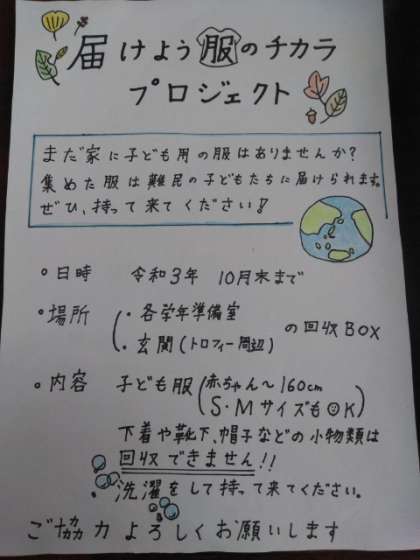 届けよう服のチカラ
プロジェクト
まだ家に子ども用の服はありませんか?
集めた服は難民の子どもたちに届けられます。
ぜひ、持って来てください!
○日時 令和3年 10月末まで
○場所 (・各学年準備室
・玄関(トロフィー周辺) の回収BOX
○内容 子ども服(赤ちゃん~160cm
S・MサイズもOK)
下着や靴下、帽子などの小物類は
回収できません!!
洗濯をして持って来てください。
ご協力よろしくお願いします